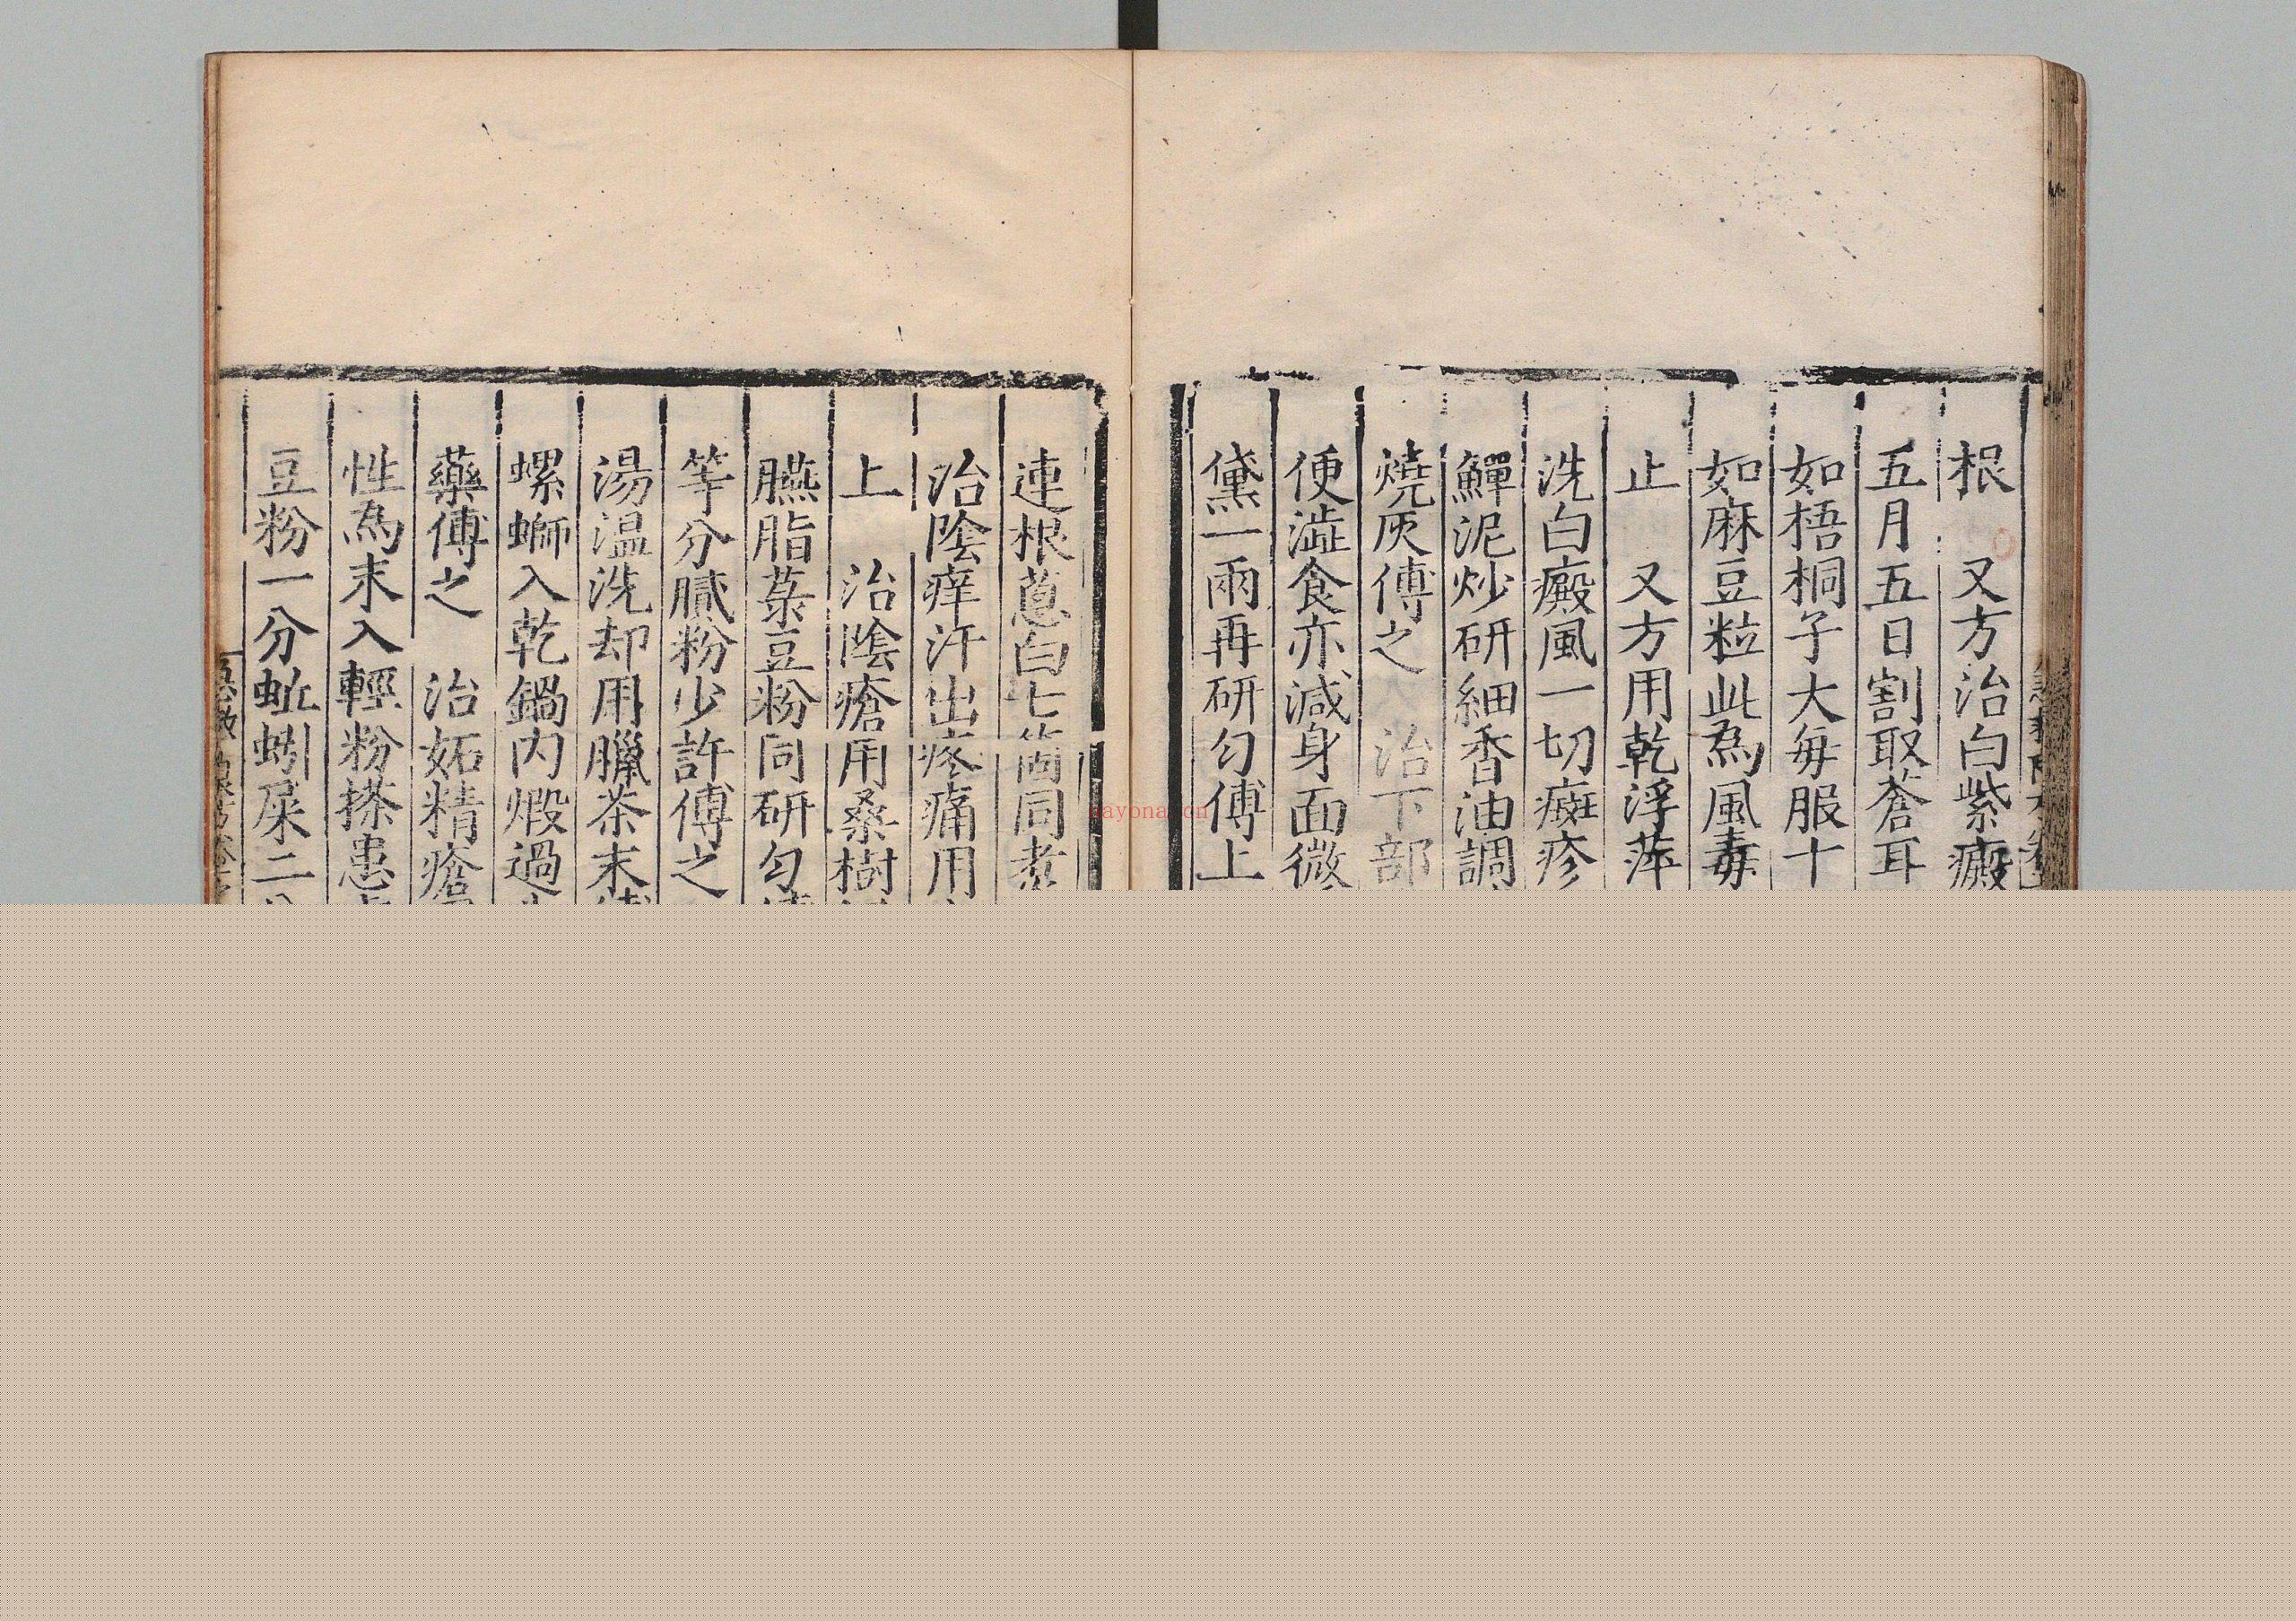 根　又方治白紫癜
五月五日割取蒼耳
如梧桐子大每服十
如麻豆粒此為風毒
止　又方用乾浮萍
洗白癜風一切癍疹
鱓泥炒研細香油調
燒灰傅之　治下部
便澁食亦減身面微
黛一兩再研勻傅上
連根蔥白七箇同煮
治陰痒汗出疼痛用
上　治陰瘡用桑樹
臙脂菉豆粉同研勻
等分膩粉少許傅之
湯温洗却用臘茶末
螺螄入乾鍋内煅過
藥傅之　治妬精瘡
性為末入輕粉搽患
豆粉一分蚯蚓屎二